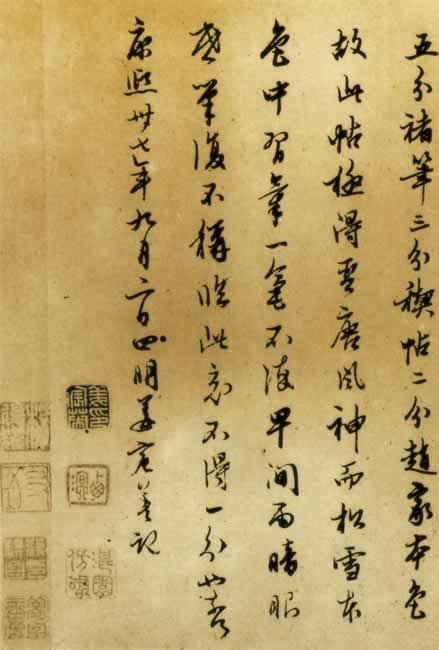 五分褚筆三分稧帖二分趙家本色
故此帖極得晋唐風神而松雪本
色中習氣一毫不早間雨暗眼
筆復不稱臨此不得一分也
康熙卅七年九月二日四明姜宸英記